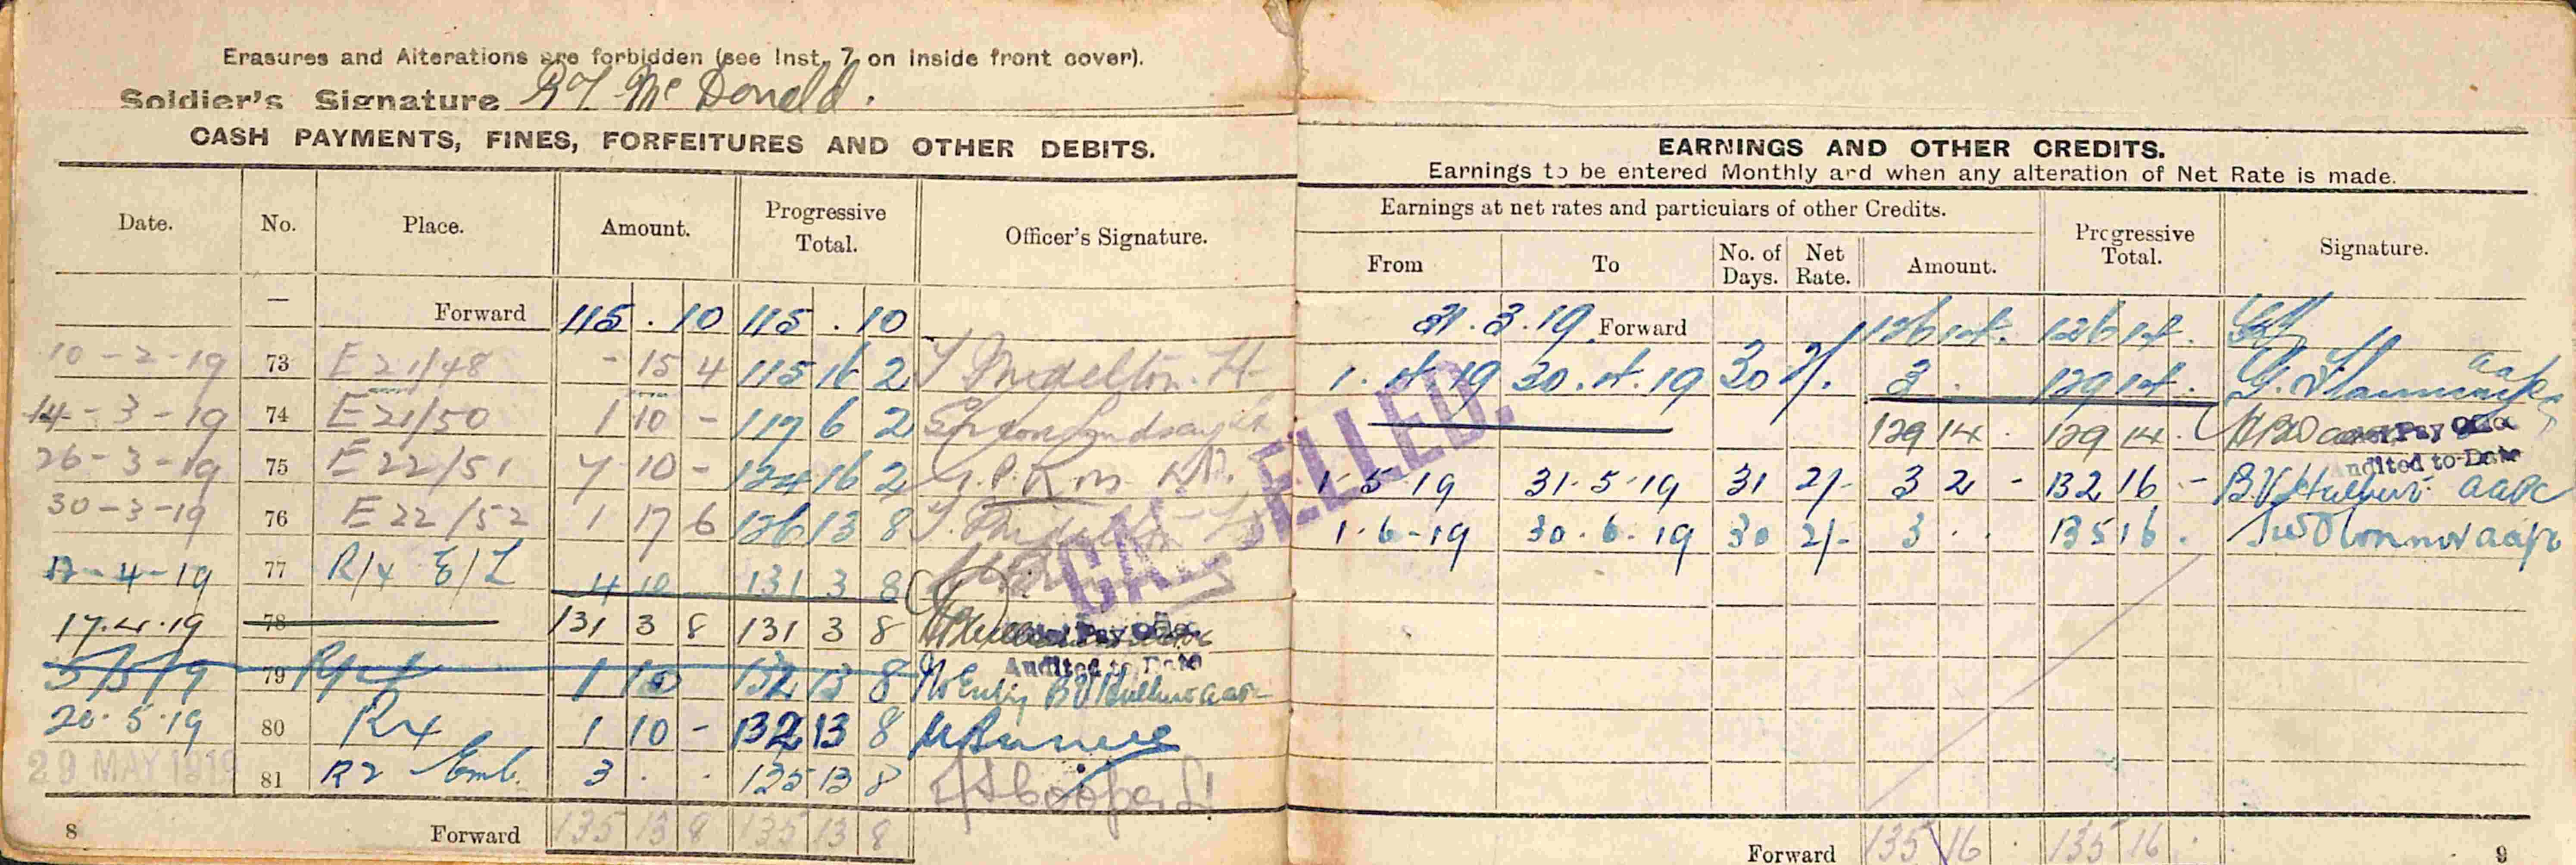 Erasures and Alterations are forbidden (see Inst. 7 on inside front cover).
Soldier's Signature McDonald.
CASH PAYMENTS, FINES, FORFEITURES AND OTHER DEBITS.
Date. No. Place. Amount. Progressive Total. Officer's Signature.
— Forward 115 . 10 115 . 10
10-2-19 73 E 21/48 - 15 4 115 16 2
14-3-19 74 E 21/50 1 10 - 117 6 2
26-3-19 75 E 22/51 7 10 - 124 16 2
30-3-19 76 E 22/52 1 17 6 126 13 8
17-4-19 77 R/4 4 10 131 3 8
17.4.19 78 131 3 8 131 3 8
Audited to Date
5/5/19 79 1 10 132 13 8 No Entry
20.5.19 80 R4 1 10 - 132 13 8
29 MAY 1919 81 R2 Emb. 3 . . 135 13 8
8 Forward 135 13 8 135 13 8
CANCELLED.
EARNINGS AND OTHER CREDITS.
Earnings to be entered Monthly and when any alteration of Net Rate is made.
Earnings at net rates and particulars of other Credits. Progressive Total. Signature.
From To No. of Days. Net Rate. Amount.
31.3.19 Forward 126 14 . 126 14 .
1.4.19 30.4.19 30 2/. 3 . 129 14 .
129 14 . 129 14 . Pay Office
Audited to Date
1-5-19 31.5.19 31 2/- 3 2 - 132 16 - AAPC
1.6-19 30.6.19 30 2/- 3 . . 135 16 .
Forward 135 16 . 135 16 . 9